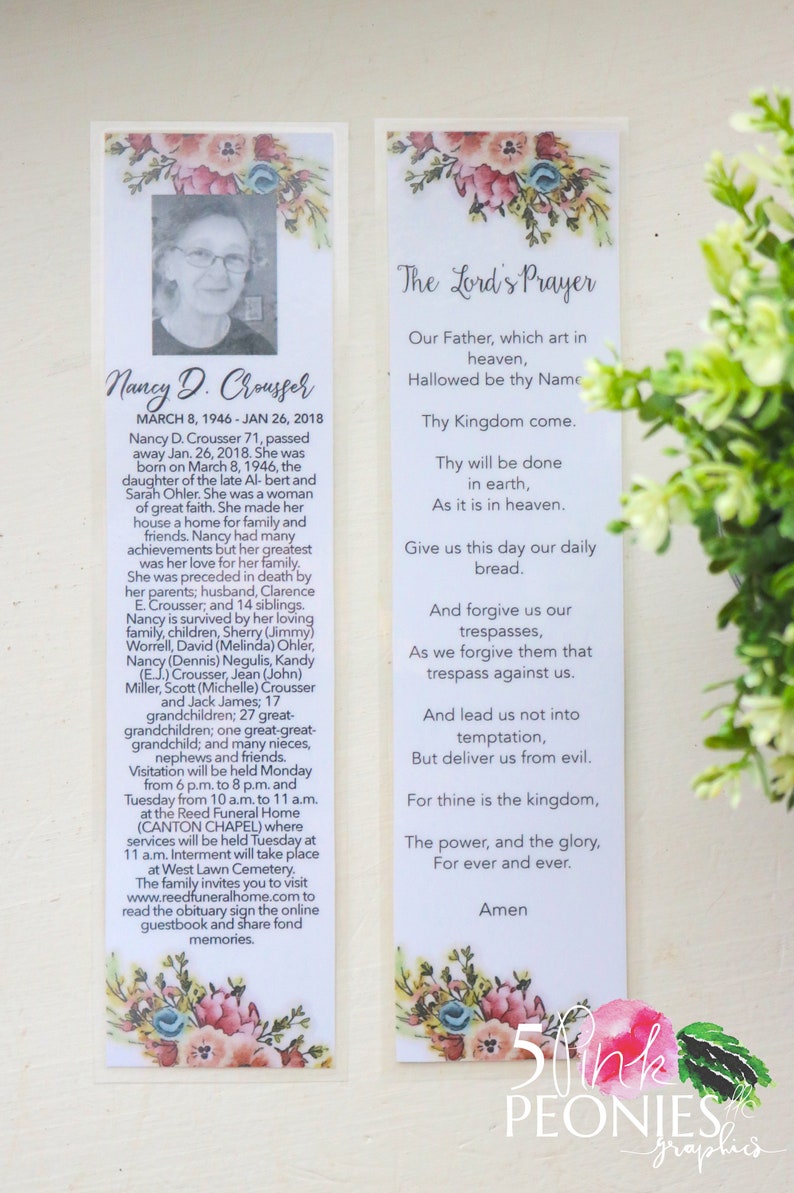 Nancy D. Crousser
MARCH 8, 1946 - JAN 26, 2018
Nancy D. Crousser 71, passed
away Jan. 26, 2018. She was
born on March 8, 1946, the
daughter of the late Al- bert and
Sarah Ohler. She was a woman
of great faith. She made her
house a home for family and
friends. Nancy had many
achievements but her greatest
was her love for her family.
She was preceded in death by
her parents; husband, Clarence
E. Crousser; and 14 siblings.
Nancy is survived by her loving
family, children, Sherry (Jimmy)
Worrell, David (Melinda) Ohler,
Nancy (Dennis) Negulis, Kandy
(E.J.) Crousser, Jean (John)
Miller, Scott (Michelle) Crousser
and Jack James; 17
grandchildren; 27 great-
grandchildren; one great-great-
grandchild; and many nieces,
nephews and friends.
Visitation will be held Monday
from 6 p.m. to 8 p.m. and
Tuesday from 10 a.m. to 11 a.m.
at the Reed Funeral Home
(CANTON CHAPEL) where
services will be held Tuesday at
11 a.m. Interment will take place
at West Lawn Cemetery.
The family invites you to visit
www.reedfuneralhome.com to
read the obituary sign the online
guestbook and share fond
memories.
The Lord's Prayer
Our Father, which art in
heaven,
Hallowed be thy Name.
Thy Kingdom come.
Thy will be done
in earth,
As it is in heaven.
Give us this day our daily
bread.
And forgive us our
trespasses,
As we forgive them that
trespass against us.
And lead us not into
temptation,
But deliver us from evil.
For thine is the kingdom,
The power, and the glory,
For ever and ever.
Amen
5 Pink
PEONIES llc
graphics